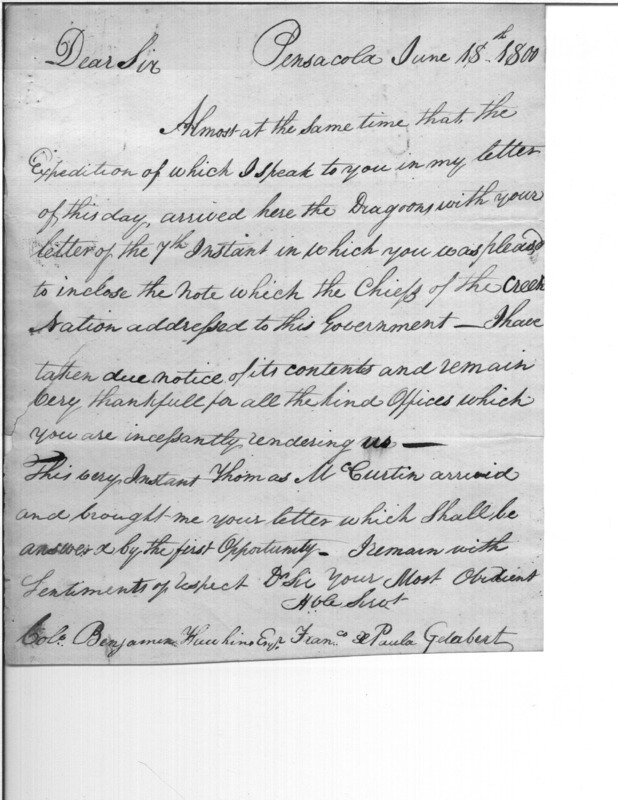 Dear Sir Pensacola June 18th 1800
Almost at the same time that, the
Expedition of which I speak to you in my letter
of this day, arrived here the Dragoons with your
letter of the 7th Instant in which you was pleasd
to inclose the Note which the Chiefs of the Creek
Nation addressed to this Government — I have
taken due notice of its contents and remain
very thankfull for all the kind Offices which
you are incessantly rendering us —
This very Instant Thomas McCurtin arrived
and brought me your letter which Shall be
answerd by the first Opportunity — I remain with
Sentiments of respect Dr Sir Your Most Obedient
Hble Servt
Colo. Benjamin Hawkins Esqr. Franco de Paula Gelabert